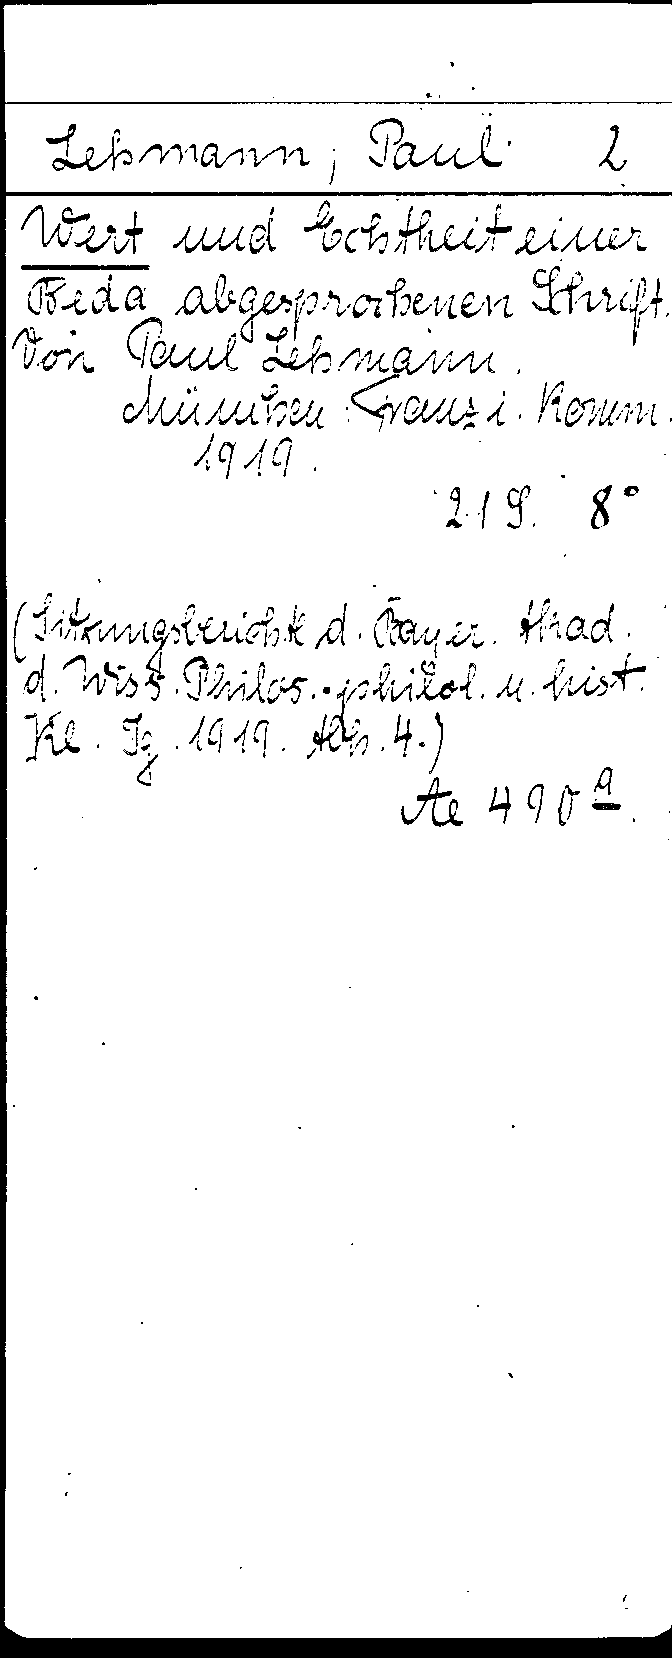 Lehmann, Paul 2
Wert und Echtheit einer
Beda abgesprochenen Schrift.
Von Paul Lehmann.
München: Franz i. Komm.
1919.
21 S. 8°
(Sitzungsberichte d. Bayer. Akad.
d. Wiss. Philos.-philol. u. hist.
Kl. Jg. 1919. Abh. 4.)
Ae 490 a.